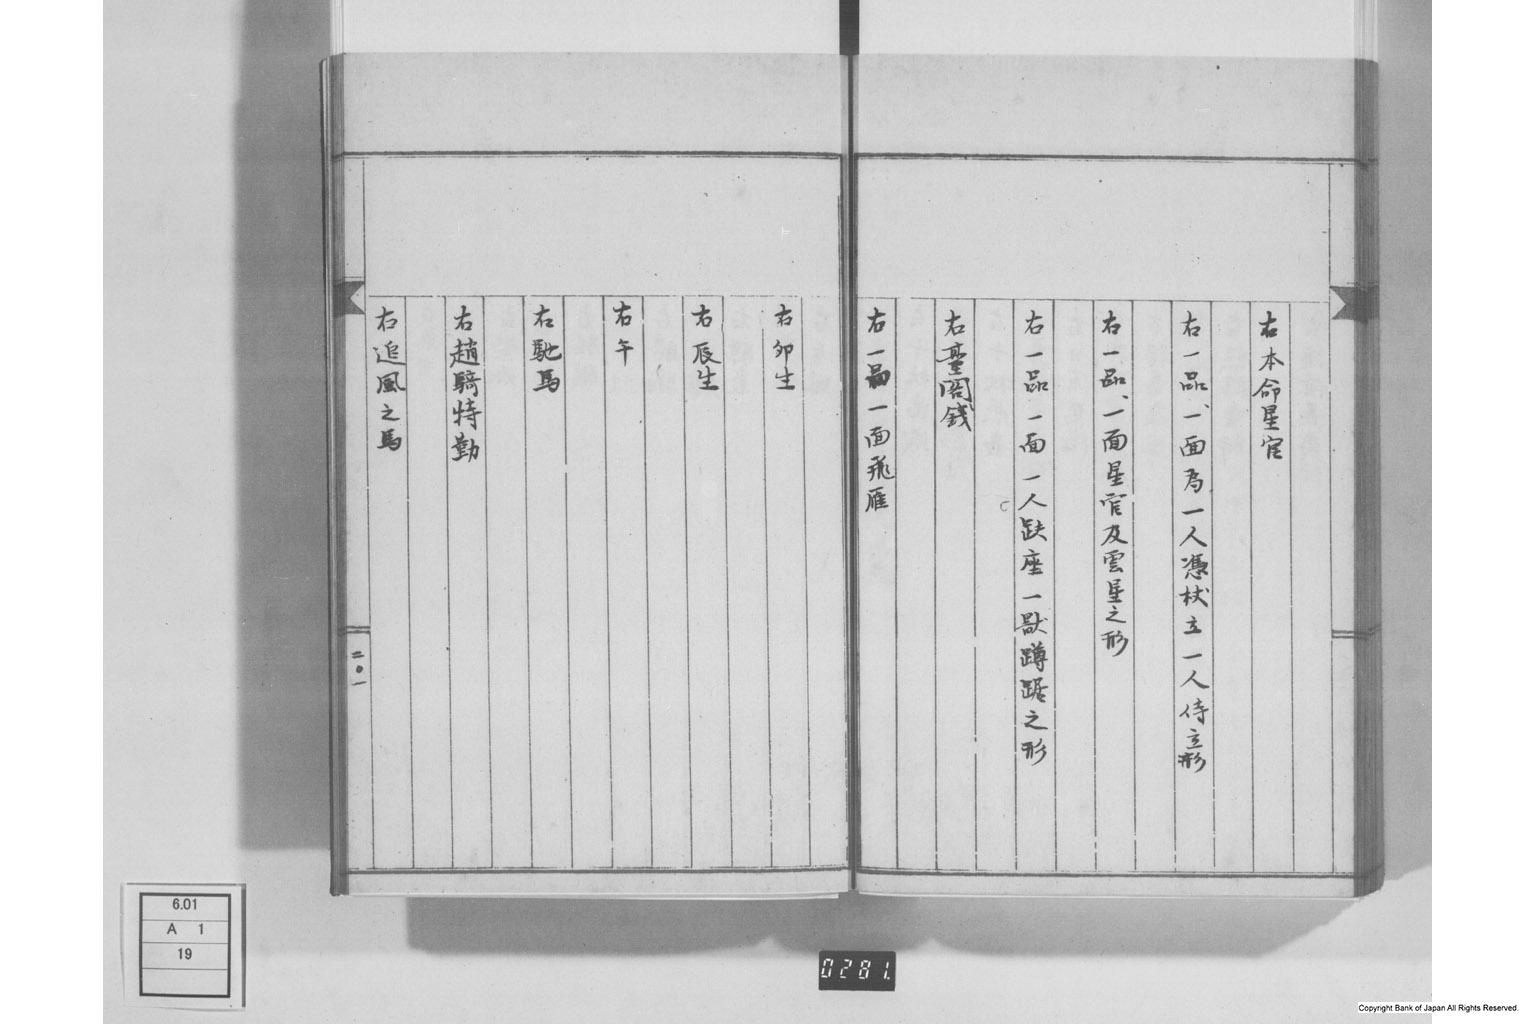 右本命星官
右一品、一面為一人憑杖立一人侍立形
右一品、一面星官及雲星之形
右一品、一面一人趺座一獸蹲踞之形
右臺閣錢
右一品一面飛雁
右卯生
右辰生
右午
右馳馬
右趙騎特勤
右追風之馬
二〇一
6.01
A 1
19
0281.
Copyright Bank of Japan All Rights Reserved.